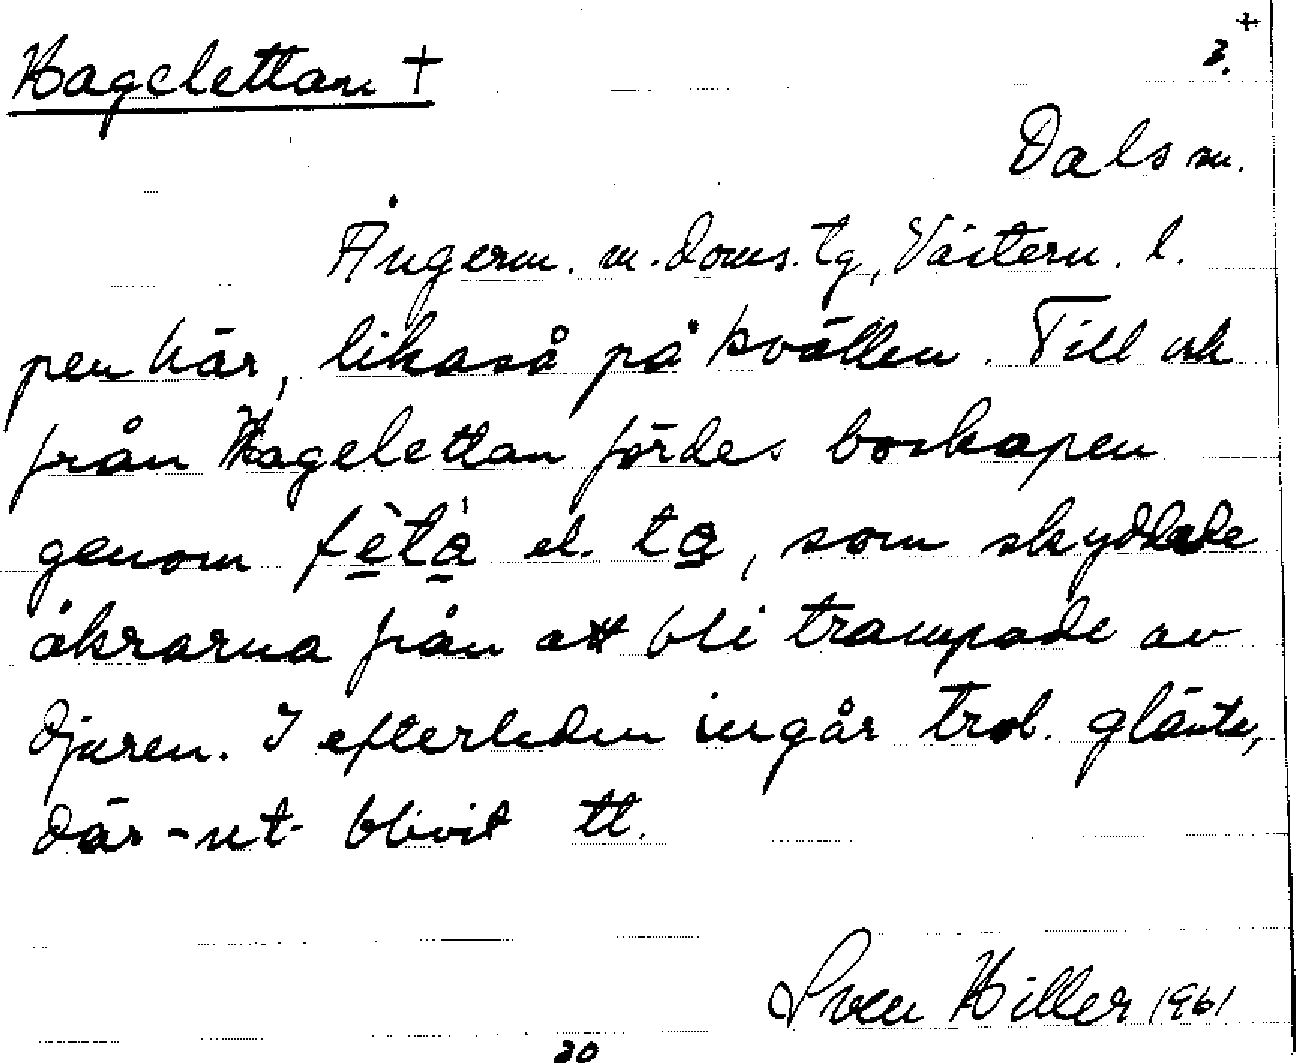 Hagelettan †
3. +
Dals sn.
Ångerm. m. doms. tg, Västern. l.
pen här, likaså på kvällen. Till och
från Hagelettan fördes boskapen
genom fètá el. ta, som skyddade
åkrarna från att bli trampade av
djuren. I efterleden ingår trol. glänta,
där -nt- blivit tt.
Sven Hiller 1961
30